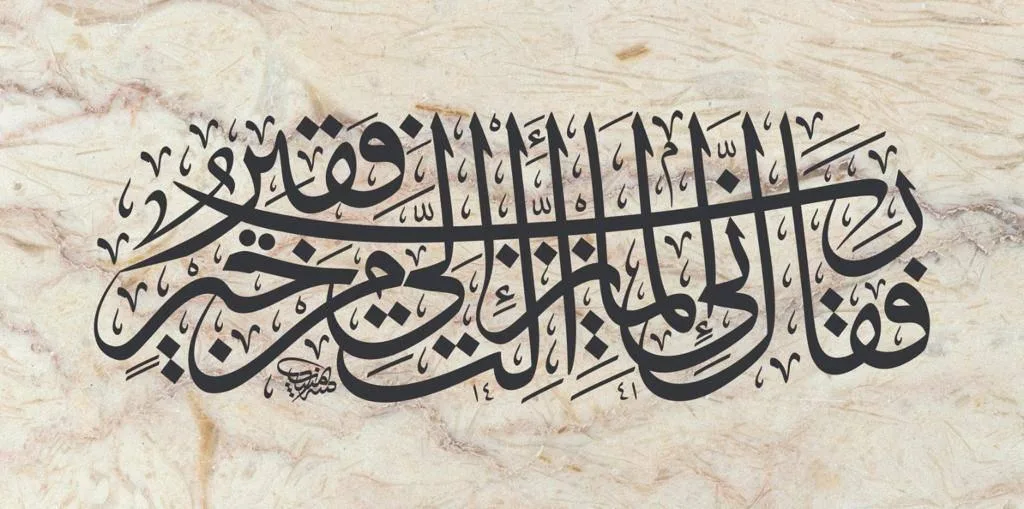 فَقَالَ رَبِّ إِنِّي لِمَا أَنْزَلْتَ إِلَيَّ مِنْ خَيْرٍ فَقِيرٌ
١٤٤١